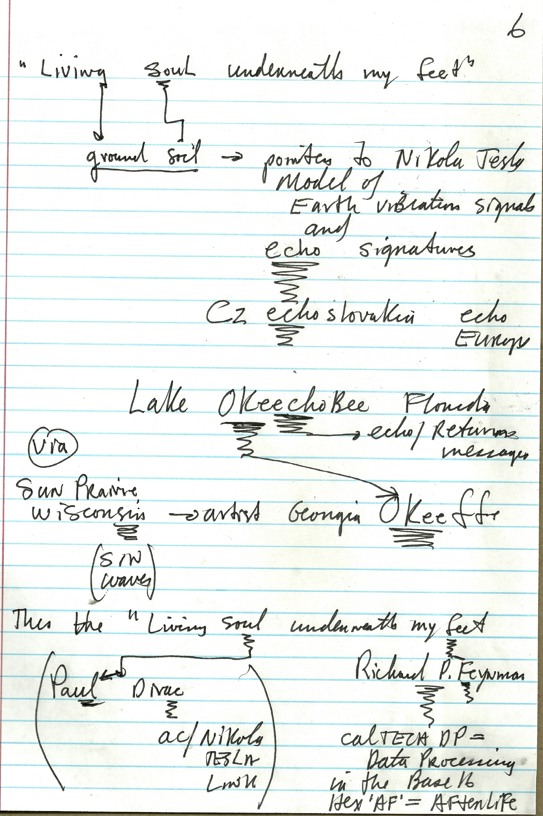 6
"Living soul underneath my feet"
ground soil → pointer to Nikola Tesla
Model of
Earth vibration signals
and
echo signatures
Cz echoslovakia echo
Europe
Lake OKeechoBee Florida
→ echo/Returns
messages
Via
Sun Prairie,
Wisconsin → artist Georgia OKeeffe
(SIN
waves)
Thus the "Living soul underneath my feet
Paul Dirac Richard P. Feynman
ac/Nikola calTECH DP =
TESLA Data Processing
Link in the Base 16
Hex 'AF' = AFterLiFe